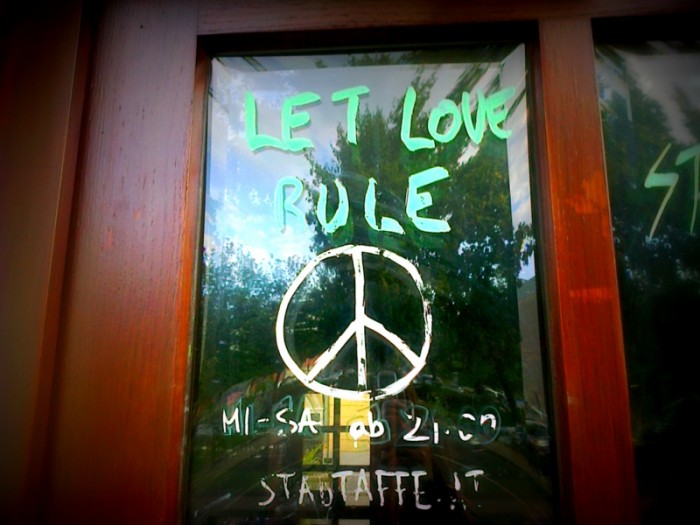 LET LOVE
RULE
MI-SA ab 21.00
STADTAFFE.AT
ST